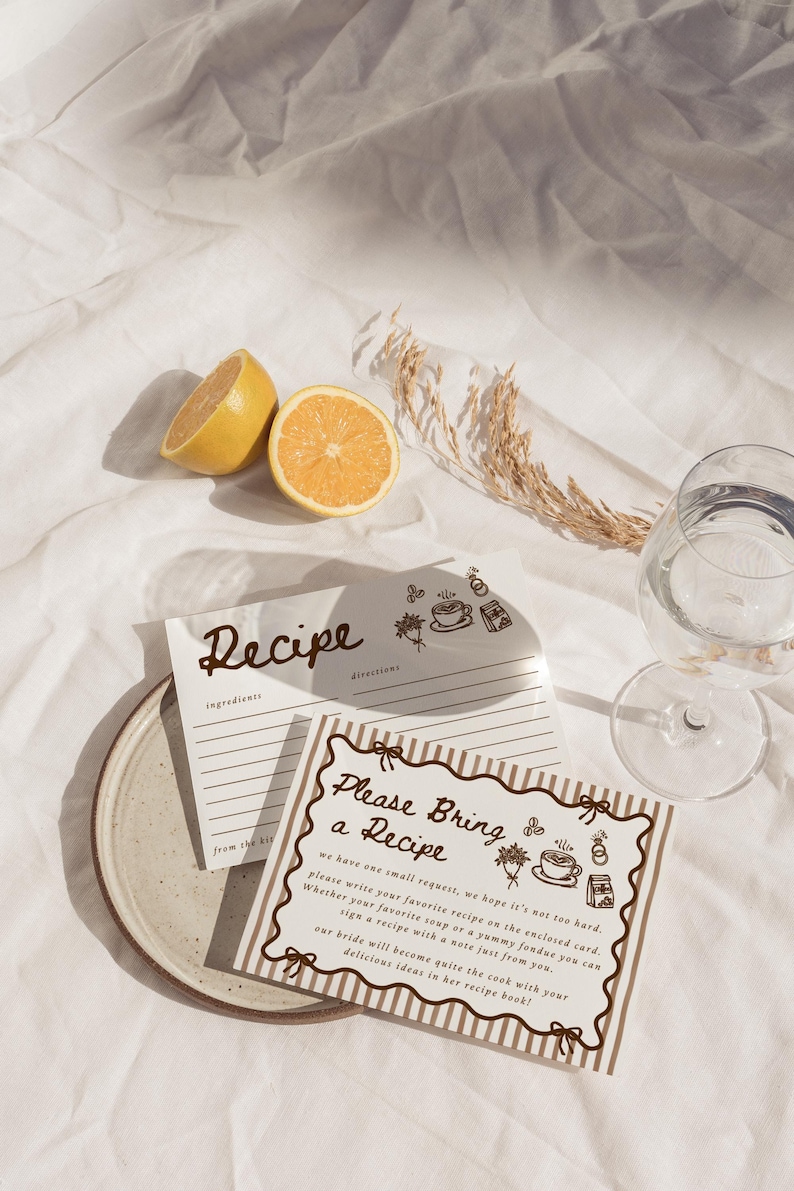 Recipe
ingredients
directions
from the
Please Bring
a Recipe
we have one small request, we hope it's not too hard.
please write your favorite recipe on the enclosed card.
Whether your favorite soup or a yummy fondue you can
sign a recipe with a note just from you.
our bride will become quite the cook with your
delicious ideas in her recipe book!
Coffee